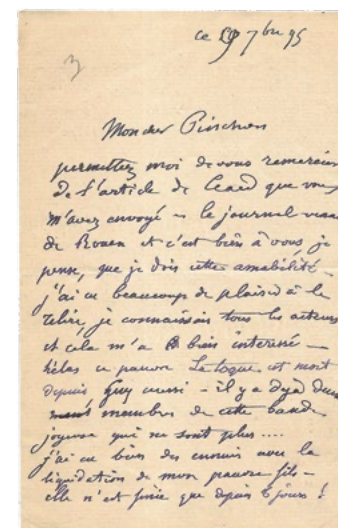 ce 29 7bre 95
3
Mon cher Pinchon
permettez moi de vous remercier
de l'article de Ceard que vous
m'avez envoyé - le journal vient
de Rouen et c'est bien à vous, je
pense, que je dois cette amabilité -
j'ai eu beaucoup de plaisir à le
relire, je connaissais tous les acteurs
et cela m'a bien interessé -
hélas ce pauvre Le toque est mort
depuis Guy aussi - il y a déjà deux
membres de cette bande
joyeuse qui ne sont plus ....
j'ai eu bien des ennuis avec la
liquidation de mon pauvre fils -
elle n'est finie que depuis 8 jours !